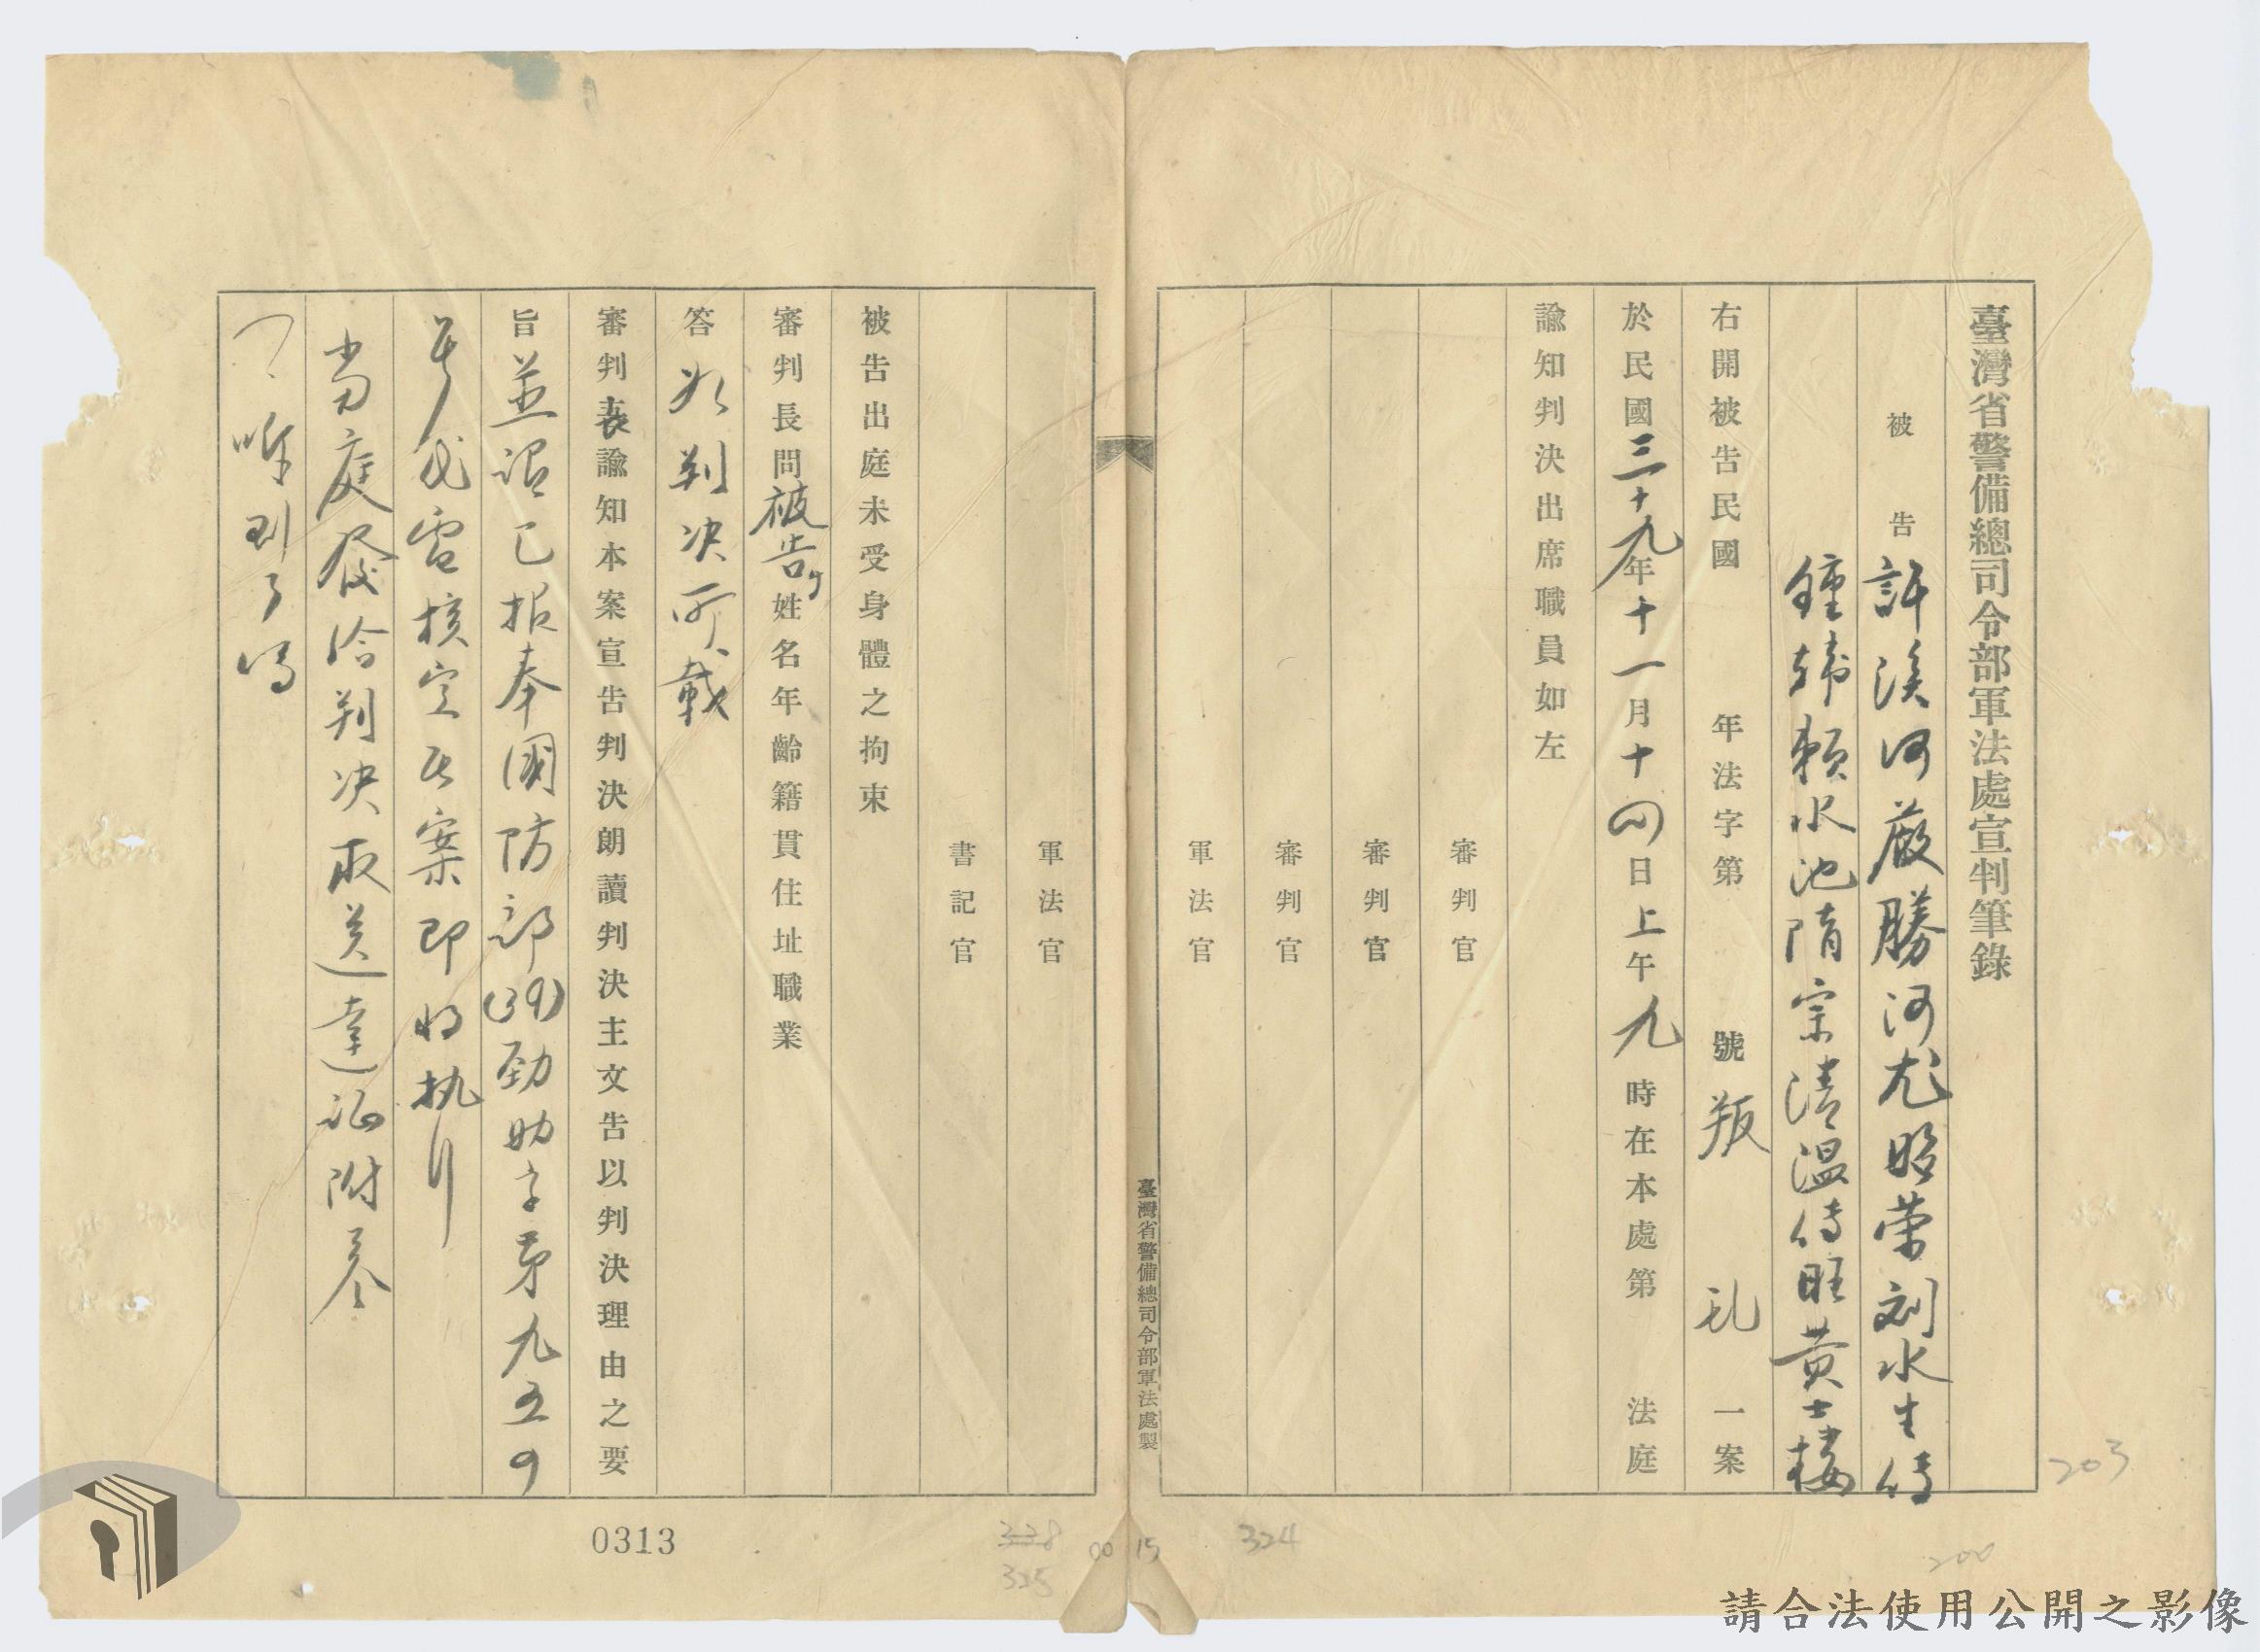 臺灣省警備總司令部軍法處宣判筆錄
被告 許溪河 嚴勝河 尤昭荣 刘水生 傅
鍾 賴水池 隋宗清 温傳旺 黄士
右開被告民國 年法字第 號 叛 乱 一案
於民國三十九年十一月十四日上午九時在本處第 法庭
諭知判決出席職員如左
審判官
審判官
審判官
軍法官
臺灣省警備總司令部軍法處製
軍法官
書記官
被告出庭未受身體之拘束
審判長問被告 姓名年齡籍貫住址職業
答 如判決所載
審判長諭知本案宣告判決朗讀判決主文告以判決理由之要
旨並谓已报奉國防部(39)勁助字第九五
号代電核定在案即将执行
當庭發给判決取送達证附卷
唯到了
0313
338
325
00 15
324
200
203
請合法使用公開之影像